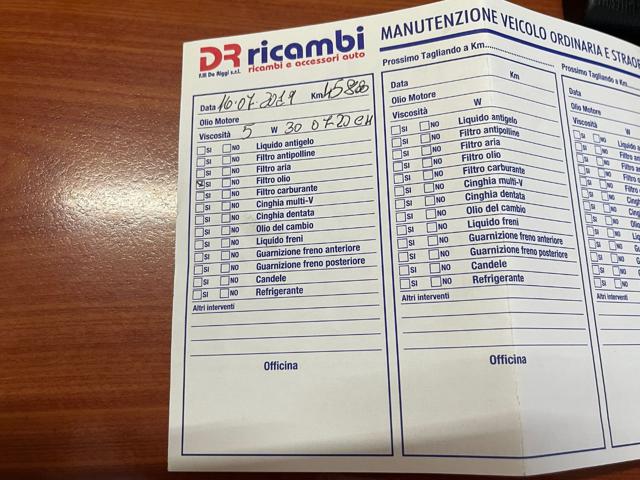 DR ricambi
F.lli De Riggi s.r.l. ricambi e accessori auto
MANUTENZIONE VEICOLO ORDINARIA E STRAOR
Data 16.07.2019 Km
Olio Motore
Viscosità 5 W 30
SI NO Liquido antigelo
SI NO Filtro antipolline
SI NO Filtro aria
SI NO Filtro olio
SI NO Filtro carburante
SI NO Cinghia multi-V
SI NO Cinghia dentata
SI NO Olio del cambio
SI NO Liquido freni
SI NO Guarnizione freno anteriore
SI NO Guarnizione freno posteriore
SI NO Candele
SI NO Refrigerante
Altri interventi
Officina
Prossimo Tagliando a Km
Data Km
Olio Motore
Viscosità W
SI NO Liquido antigelo
SI NO Filtro antipolline
SI NO Filtro aria
SI NO Filtro olio
SI NO Filtro carburante
SI NO Cinghia multi-V
SI NO Cinghia dentata
SI NO Olio del cambio
SI NO Liquido freni
SI NO Guarnizione freno anteriore
SI NO Guarnizione freno posteriore
SI NO Candele
SI NO Refrigerante
Altri interventi
Officina
Prossimo Tagliando a Km
Data
Olio Motore
Viscosità